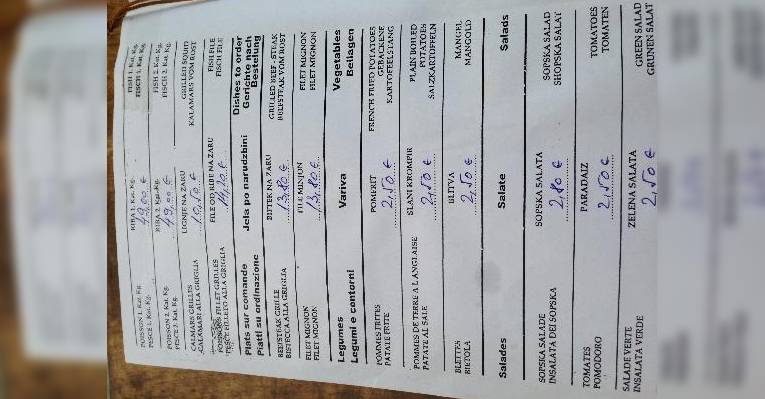 POISSON 1. Kat. Kg. RIBA 1. Kat. Kg. FISH 1. Kat. Kg.
PESCE 1. Kat. Kg. FISCH 1. Kat. Kg.
POISSON 2. Kat. Kg. RIBA 2. Kat. Kg. FISH 2. Kat. Kg.
PESCE 2. Kat. Kg. 49,00 € FISCH 2. Kat. Kg.
CALAMARS GRILLES LIGNJE NA ZARU GRILLED SQUID
CALAMARI ALLA GRIGLIA KALAMARS VOM ROST
POISSONS FILLET GRILLES FILE OD RIBE NA ZARU FISH FILE
PESCE FILLETO ALLA GRIGLIA FISCH FILE
Plats sur comande Jela po narudzbini Dishes to order
Piatti su ordinazione Gerichte nach
Bestellung
BEEFSTEAK GRILLE BIFTEK NA ZARU GRILLED BEEF-STEAK
BISTECCA ALLA GRIGLIA 13,80 € BEEFSTEAK VOM ROST
FILET MIGNON FILE MINJON FILET MIGNON
FILET MIGNON 13,80 € FILET MIGNON
Legumes Variva Vegetables
Legumi e contorni Beilagen
POMMES FRITES POMFRIT FRENCH FRIED POTATOES
PATATE FRITE 2,50 € GEBACKENE
KARTOFFELSTANG
POMMES DE TERRE A L ANGLAISE SLANI KROMPIR PLAIN BOILED
PATATE AL SALE 2,50 € POTATOES
SALZKARTOFFELN
BLETTES BLITVA MANGEL
BIETOLA 2,50 € MANGOLD
Salades Salate Salads
SOPSKA SALADE SOPSKA SALATA SOPSKA SALAD
INSALATA DEI SOPSKA 2,80 € SHOPSKA SALAT
TOMATES PARADAIZ TOMATOES
POMODORO 2,50 € TOMATEN
SALADE VERTE ZELENA SALATA GREEN SALAD
INSALATA VERDE 2,50 € GRUNEN SALAT